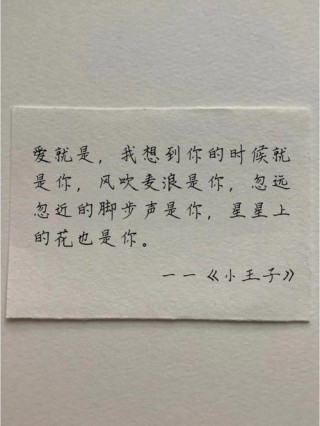 爱就是，我想到你的时候就
是你，风吹麦浪是你，忽远
忽近的脚步声是你，星星上
的花也是你。
一一《小王子》